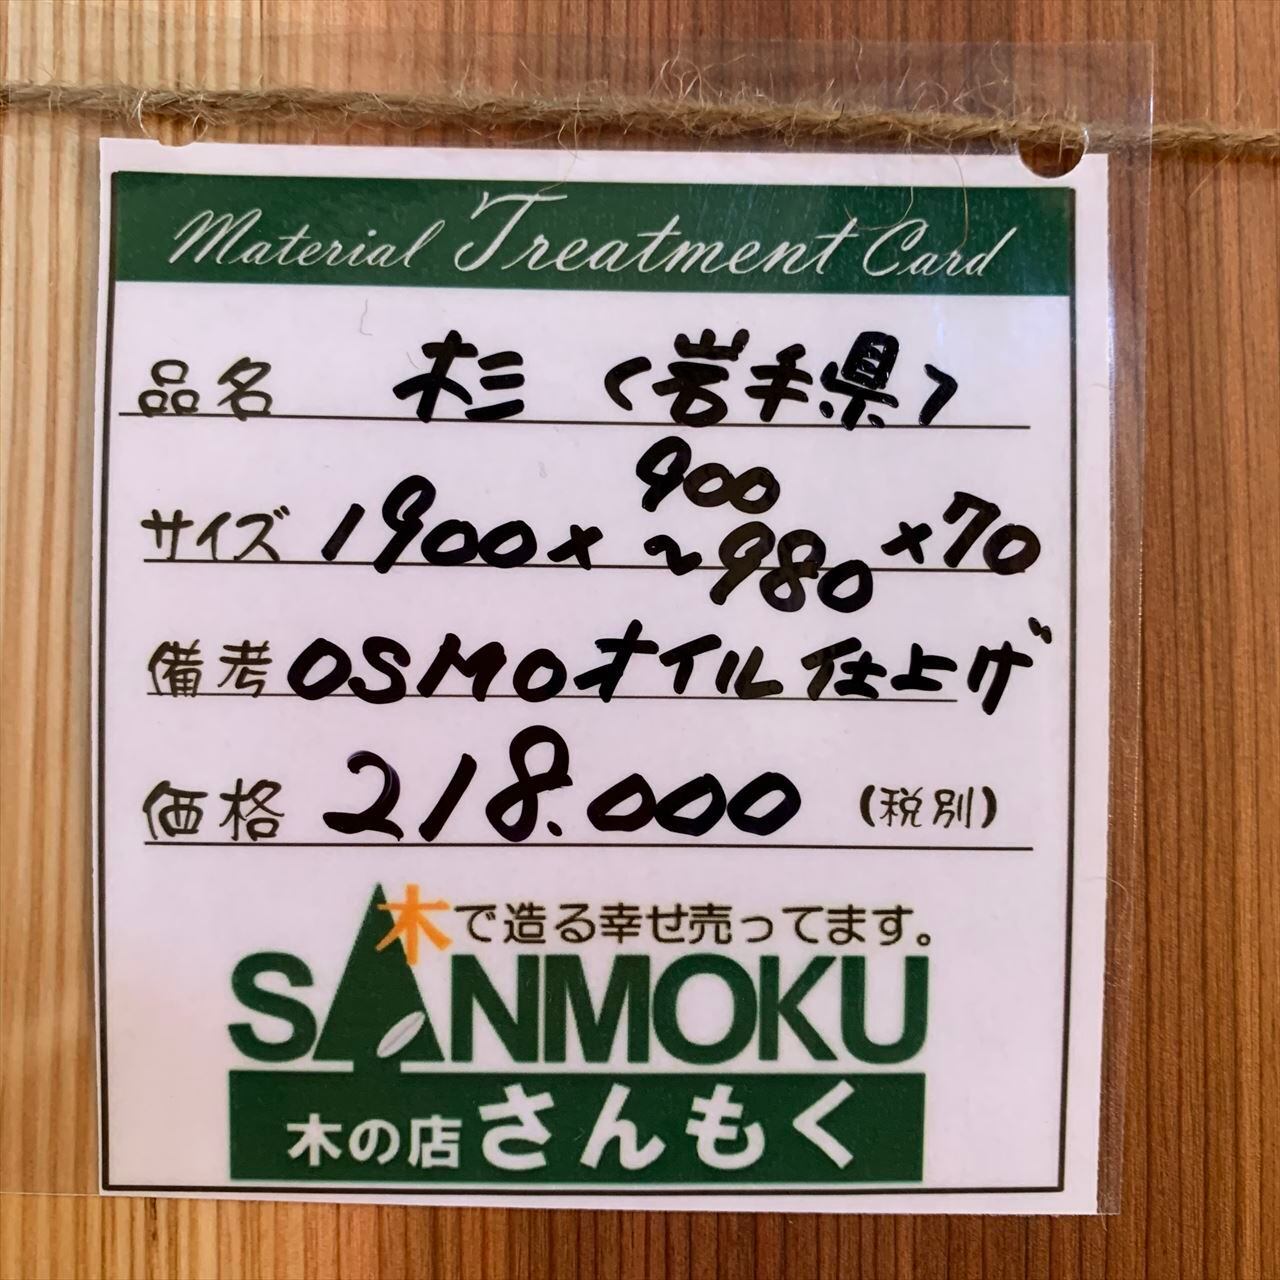 Material Treatment Card
品名 杉 (岩手県)
サイズ 1900× 900~980 ×70
備考 OSMOオイル仕上げ
価格 218.000 (税別)
木で造る幸せ売ってます。
SANMOKU
木の店 さんもく